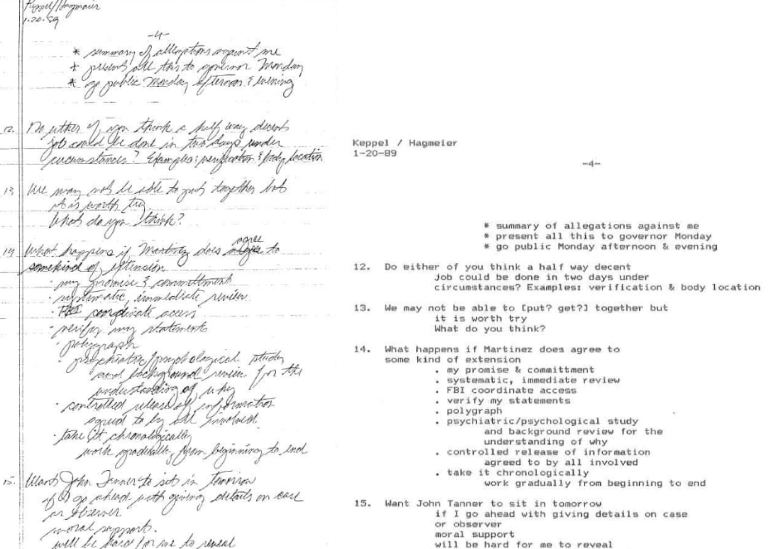 Keppel/Hagmeier
1-20-89
-4-
* summary of allegations against me
* present all this to governor Monday
* go public Monday afternoon & evening
12. Do either of you think a half way decent
job could be done in two days under
circumstances? Examples: verification & body location
13 We may not be able to put together but
it is worth try
What do you think?
14 What happens if Martinez does agree to
somekind of extension
· my promise & committment
· systematic, immediate review
· FBI coordinate access
· verify my statements
· polygraph
· psychiatric/psychological study
and background review for the
understanding of why
· controlled release of information
agreed to by all involved
· take it chronologically
work gradually from beginning to end
15. Want John Tanner to sit in tomorrow
if I go ahead with giving details on case
or observer
moral support.
will be hard for me to reveal
Keppel / Hagmeier
1-20-89
-4-
* summary of allegations against me
* present all this to governor Monday
* go public Monday afternoon & evening
12. Do either of you think a half way decent
job could be done in two days under
circumstances? Examples: verification & body location
13. We may not be able to [put? get?] together but
it is worth try
What do you think?
14. What happens if Martinez does agree to
some kind of extension
. my promise & committment
. systematic, immediate review
. FBI coordinate access
. verify my statements
. polygraph
. psychiatric/psychological study
and background review for the
understanding of why
. controlled release of information
agreed to by all involved
. take it chronologically
work gradually from beginning to end
15. Want John Tanner to sit in tomorrow
if I go ahead with giving details on case
or observer
moral support
will be hard for me to reveal